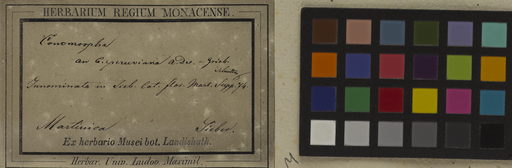 HERBARIUM REGIUM MONACENSE.
Conomorpha
an C. peruviana A. Dc. - Grisb.
Innominata in Sieb. Cat. flor. Mart. Supp. 74.
Martinica Sieber.
Ex herbario Musei bot. Landishuth.
Herbar. Univ. Ludov. Maximil.